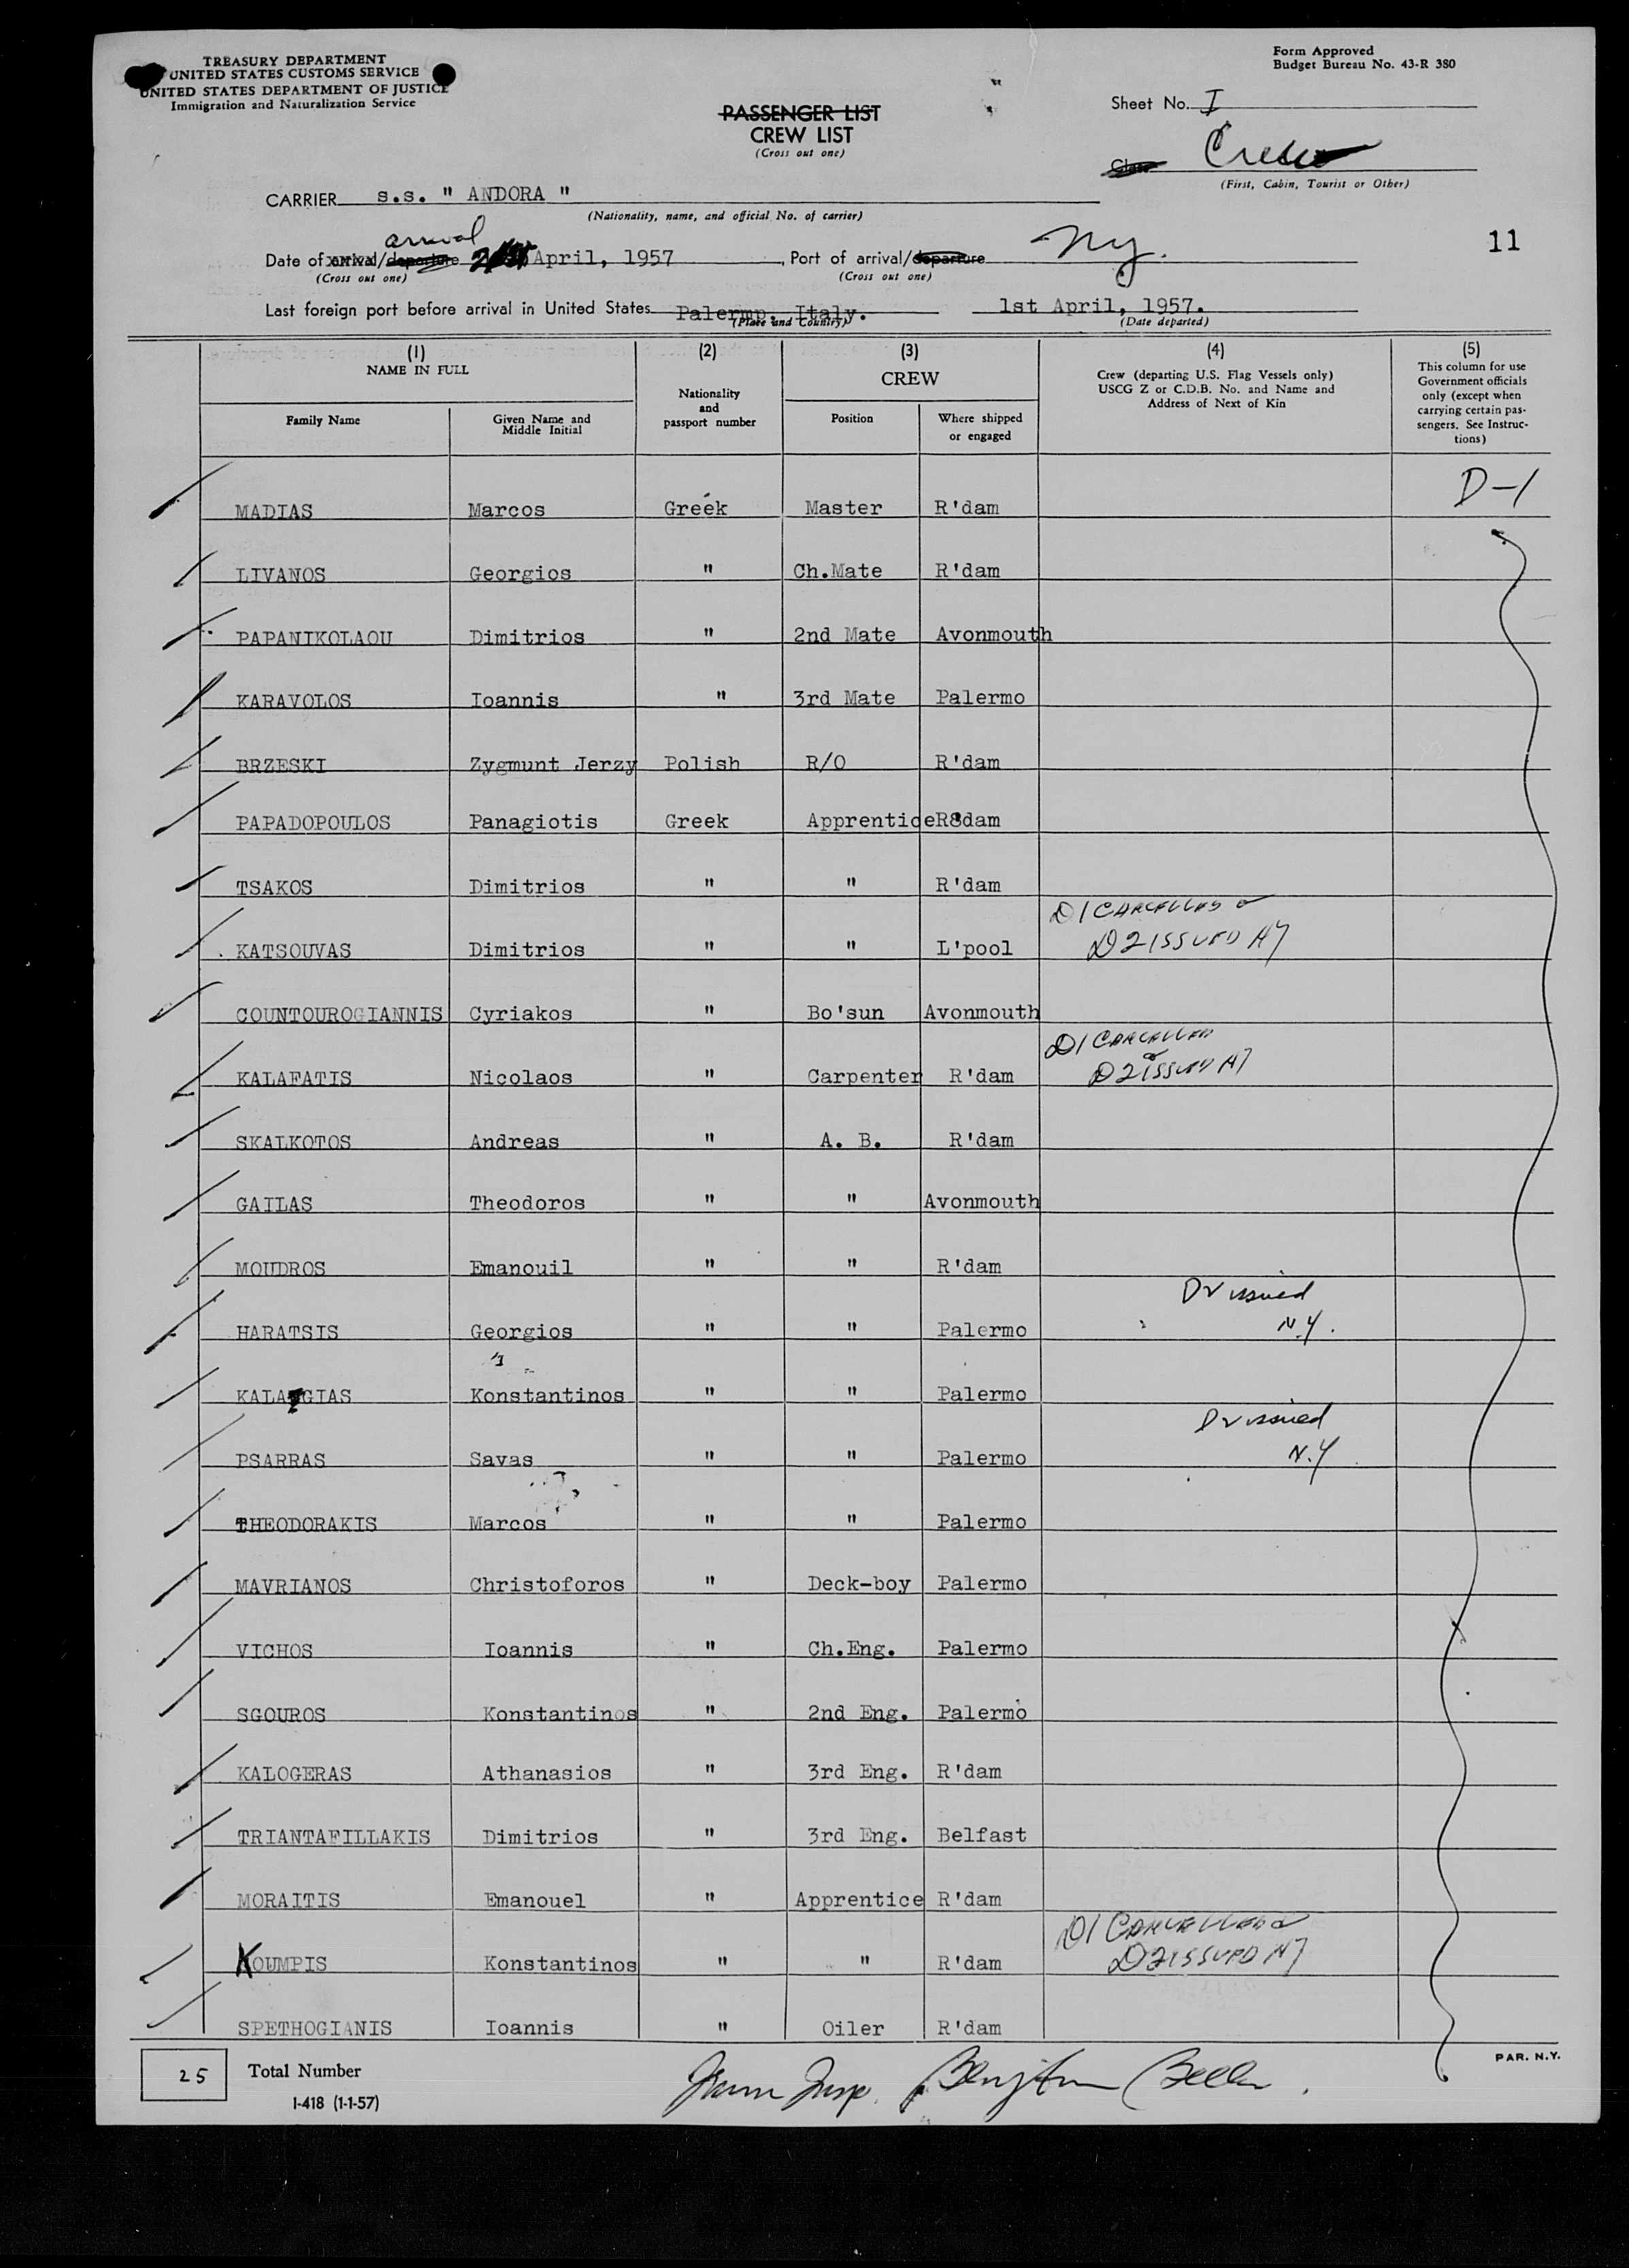 TREASURY DEPARTMENT
UNITED STATES CUSTOMS SERVICE
UNITED STATES DEPARTMENT OF JUSTICE
Immigration and Naturalization Service
Form Approved
Budget Bureau No. 43-R 380
Sheet No. I
PASSENGER LIST
CREW LIST
(Cross out one)
Class Crew
(First, Cabin, Tourist or Other)
CARRIER s.s. " ANDORA "
(Nationality, name, and official No. of carrier)
arrival
Date of arrival/departure April, 1957, Port of arrival/departure NY.
(Cross out one) (Cross out one)
11
Last foreign port before arrival in United States Palermp. Italy. 1st April, 1957.
(Place and Country) (Date departed)
(1) (2) (3) (4) (5)
NAME IN FULL Nationality and passport number CREW Crew (departing U.S. Flag Vessels only) USCG Z or C.D.B. No. and Name and Address of Next of Kin This column for use Government officials only (except when carrying certain passengers. See Instructions)
Family Name Given Name and Middle Initial Position Where shipped or engaged
MADIAS Marcos Greek Master R'dam D-1
LIVANOS Georgios " Ch.Mate R'dam
PAPANIKOLAOU Dimitrios " 2nd Mate Avonmouth
KARAVOLOS Ioannis " 3rd Mate Palermo
BRZESKI Zygmunt Jerzy Polish R/O R'dam
PAPADOPOULOS Panagiotis Greek Apprentice R8dam
TSAKOS Dimitrios " " R'dam
D1 CANCELLED &
KATSOUVAS Dimitrios " " L'pool D2 ISSUED NY
COUNTOUROGIANNIS Cyriakos " Bo'sun Avonmouth
D1 CANCELLED
&
KALAFATIS Nicolaos " Carpenter R'dam D2 ISSUED NY
SKALKOTOS Andreas " A. B. R'dam
GAILAS Theodoros " " Avonmouth
MOUDROS Emanouil " " R'dam
D2 issued
HARATSIS Georgios " " Palermo N.Y.
KALA GIAS Konstantinos " " Palermo
D2 issued
PSARRAS Savas " " Palermo N.Y
THEODORAKIS Marcos " " Palermo
MAVRIANOS Christoforos " Deck-boy Palermo
VICHOS Ioannis " Ch.Eng. Palermo
SGOUROS Konstantinos " 2nd Eng. Palermo
KALOGERAS Athanasios " 3rd Eng. R'dam
TRIANTAFILLAKIS Dimitrios " 3rd Eng. Belfast
MORAITIS Emanouel " Apprentice R'dam
D1 CANCELLED &
KOUMPIS Konstantinos " " R'dam D2 ISSUED NY
SPETHOGIANIS Ioannis " Oiler R'dam
PAR. N.Y.
25 Total Number
I-418 (1-1-57)